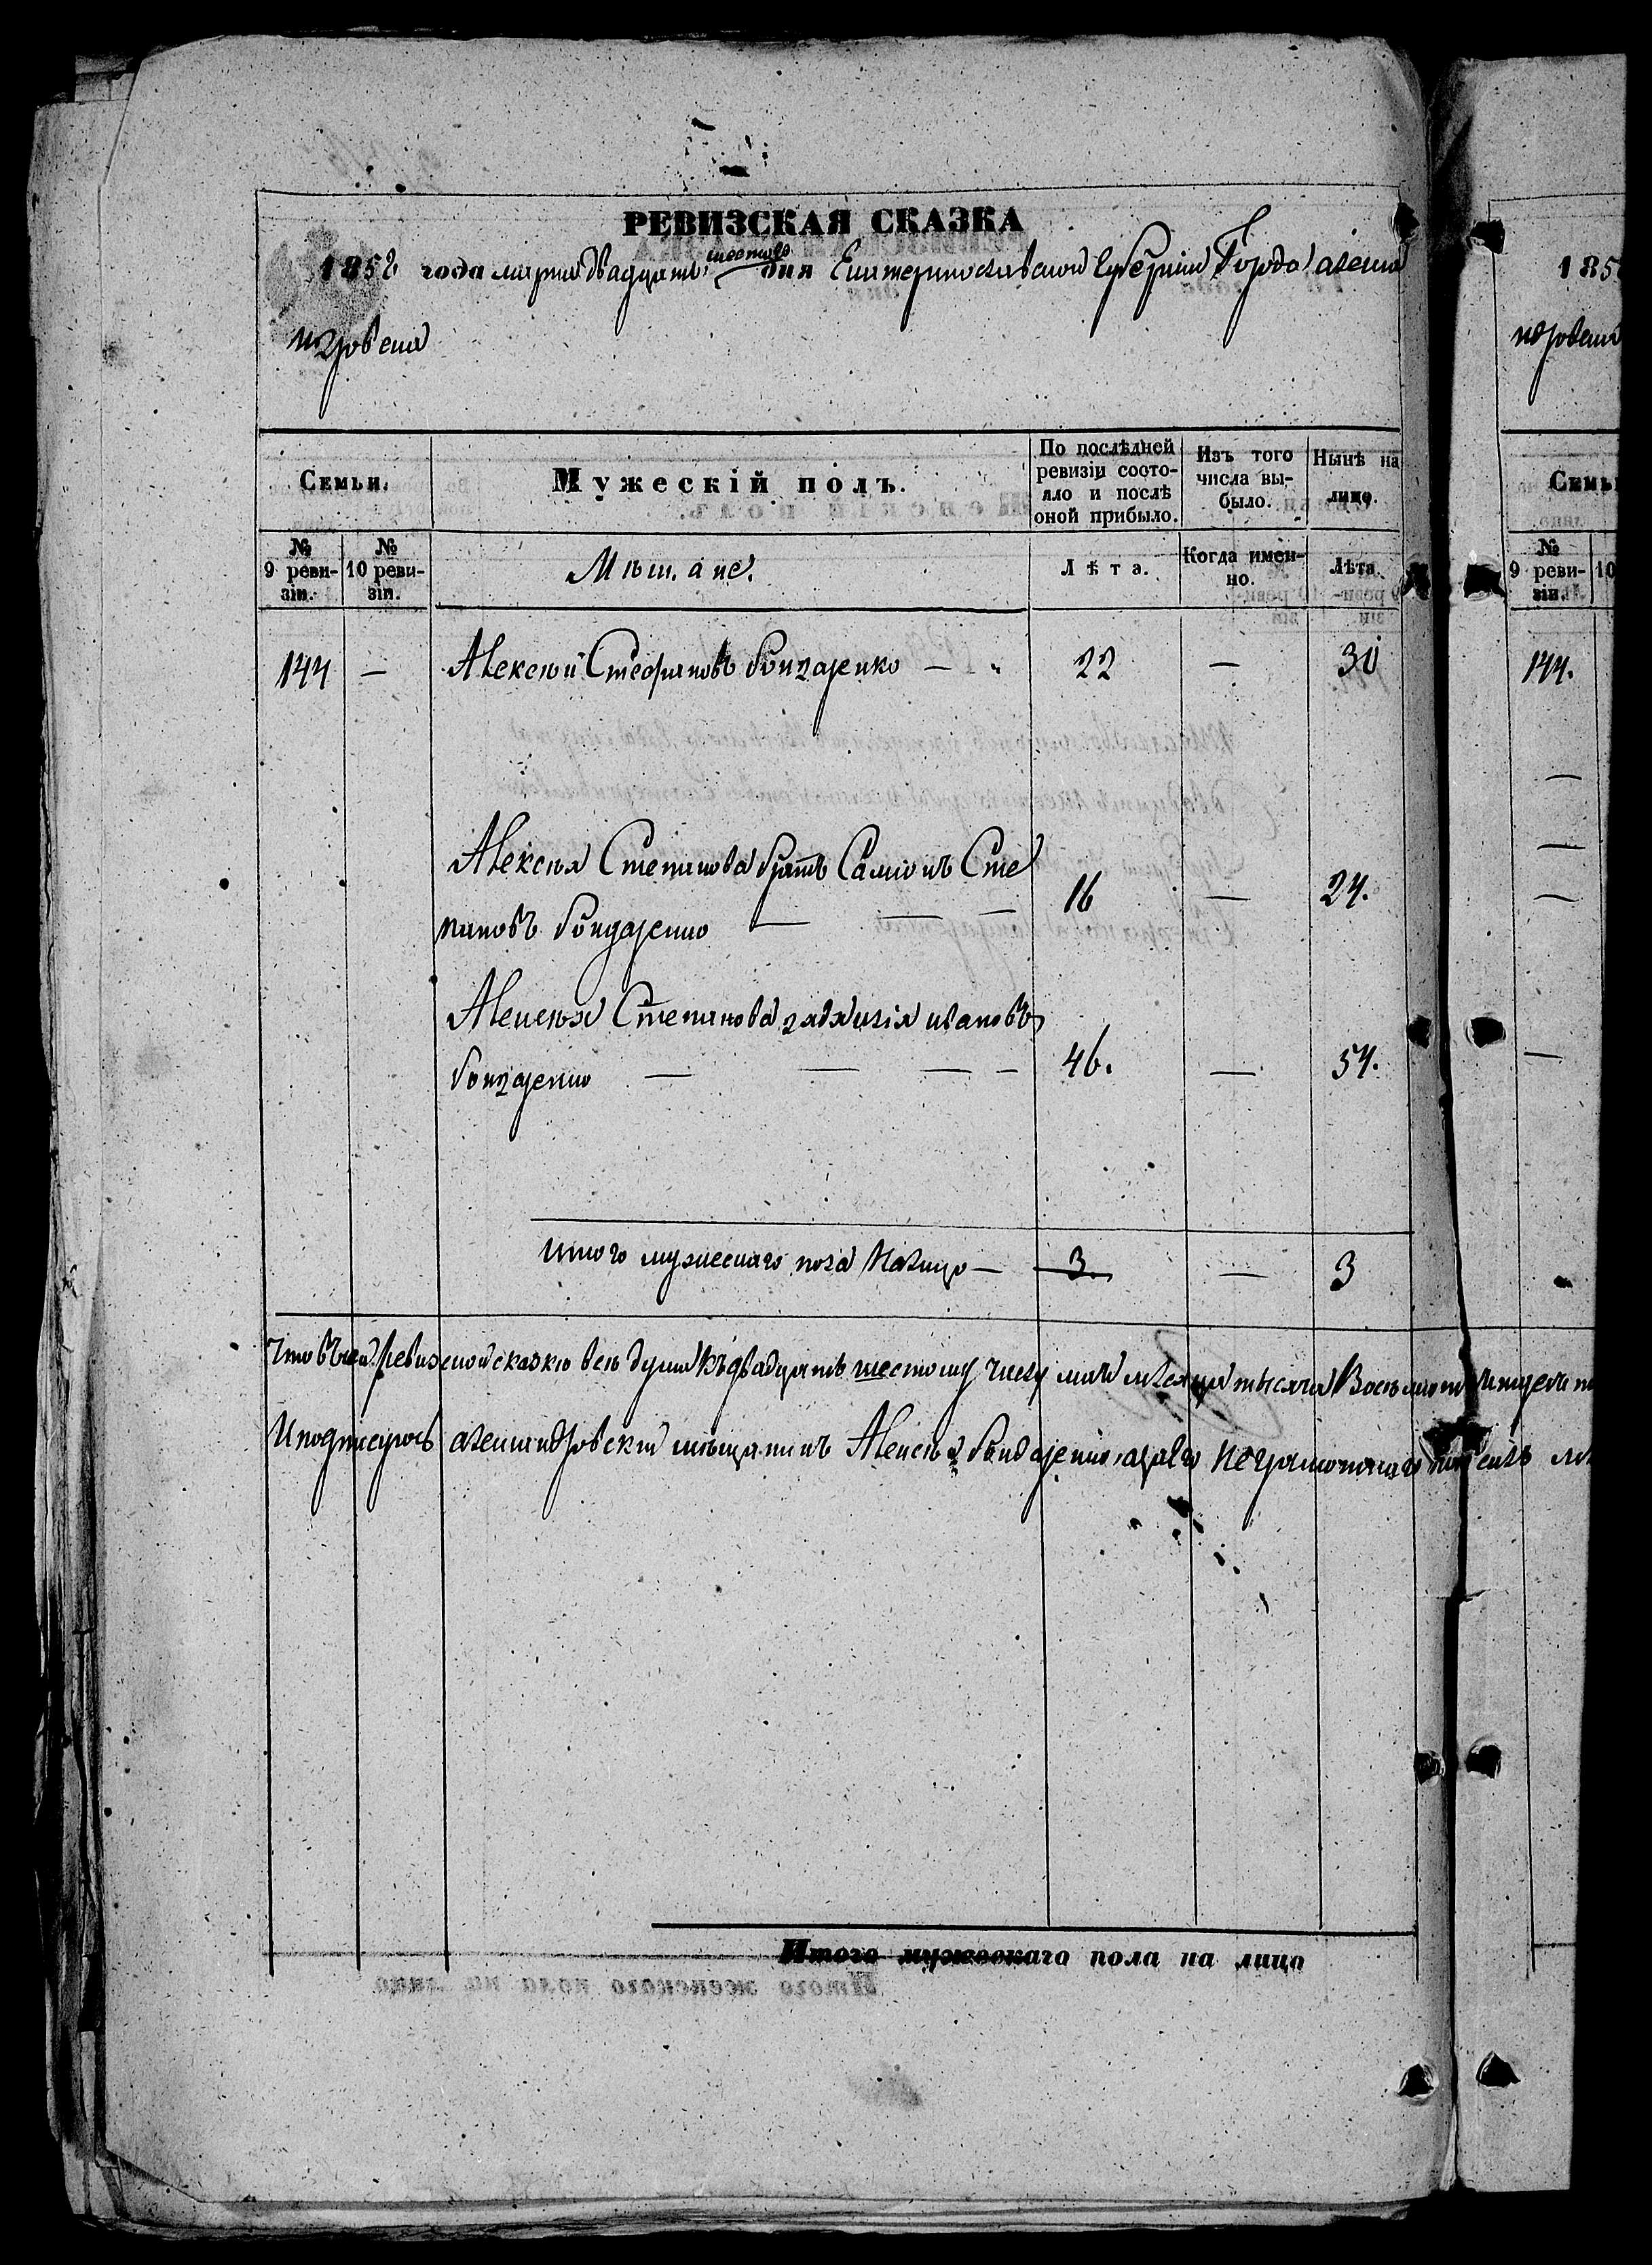 РЕВИЗСКАЯ СКАЗКА
1858 года марта двадцать шестаго дня Екатеринославской Губернии Города алекса
ндровска
Семьи.
Мужескій полъ.
По послѣдней ревизіи состо-
яло и послѣ
оной прибыло.
Изъ того
числа вы-
было.
Нынѣ на
лицо.
№
9 реви-
зіи.
№
10 реви-
зіи.
Мѣщане.
Лѣта.
Когда имен-
но.
Лѣта
144 — Алексѣй Стефановъ бондаренко — 22 — 30
Алексѣя Степанова братъ Самюилъ Сте
пановъ бондаренко — — — 16 — 24.
Алексѣя Степанова дядя ивановъ
бондаренко — — — — 46. — 54.
итого мужескаго пола налицо — 3 — 3
Что въ сей ревизской сказкѣ всѣ души къ двадцать шестому числу тысяча Восемьсот
И подписуюсь александровский мѣщанинъ Алексѣй бондаренко, а неграмотнаго
Итого мужескаго пола на лицо
185
ндровска
Семьи
№
9 реви-
зіи.
10
144.
—
—
—
—